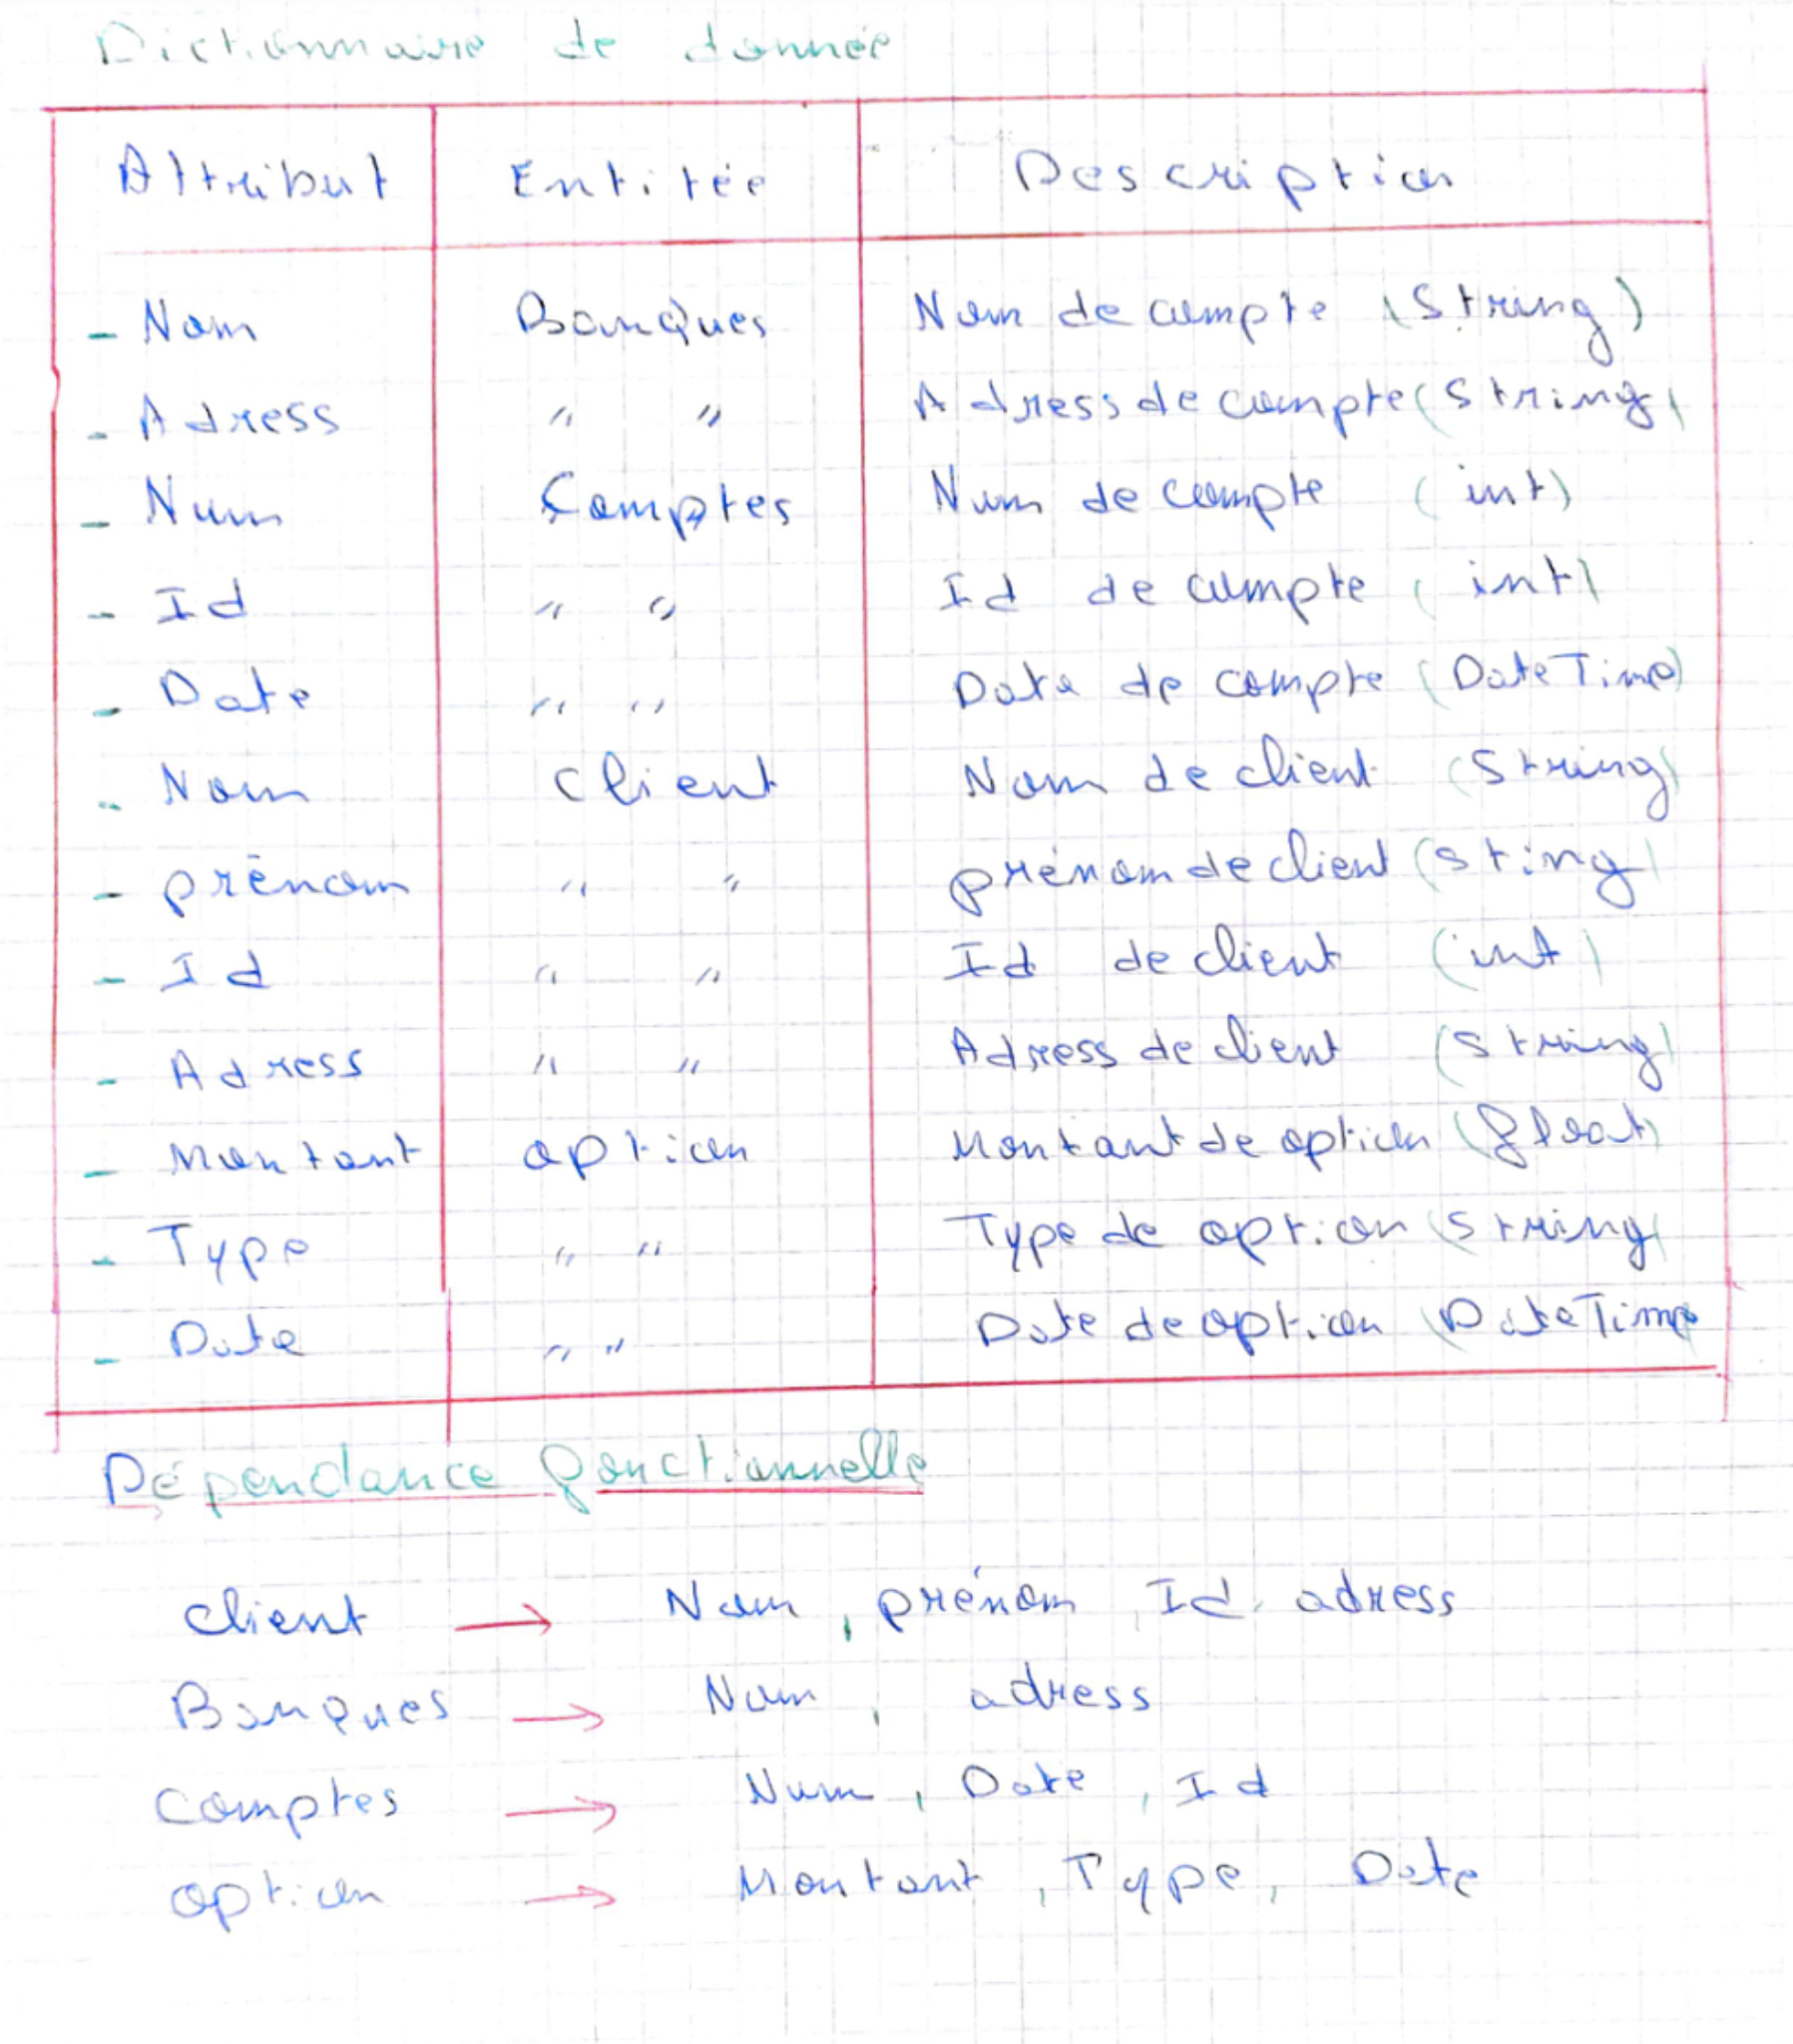 Dictionnaire de donnée
Attribut Entitée Description
- Nom Banques Nom de compte (String)
- Adress " " Adress de compte (String)
- Num Comptes Num de compte (int)
- Id " " Id de compte (int)
- Date " " Date de compte (DateTime)
- Nom Client Nom de client (String)
- prénom " " prénom de client (Sting)
- Id " " Id de client (int)
- Adress " " Adress de client (String)
- Montant option Montant de option (float)
- Type " " Type de option (String)
- Date " " Date de option (DateTime
Dépendance fonctionnelle
Client → Nom, prénom, Id, adress
Banques → Nom, adress
Comptes → Num, Date, Id
option → Montant, Type, Date